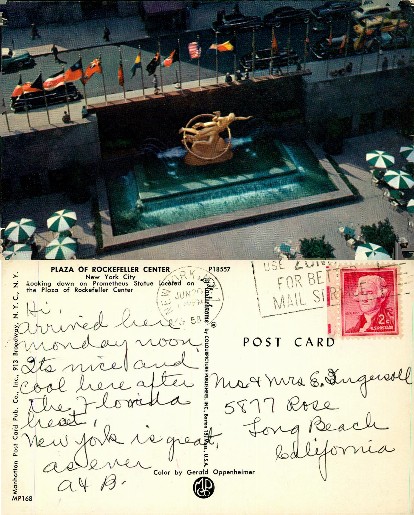 PLAZA OF ROCKEFELLER CENTER
New York City
Looking down on Prometheus Statue Located on
the Plaza of Rockefeller Center
P18557
NEW YORK
JUN
USE ZONE
FOR BE
MAIL SER
2¢
Hi,
arrived here
monday noon
Its nice and
cool here after
the Florida
heat,
New York is great,
as ever
A & B.
POST CARD
Mr & Mrs E. Ingersoll
5877 Rose
Long Beach
California
Manhattan Post Card Pub. Co., Inc., 913 Broadway, N. Y. C., N. Y.
MP168
Color by Gerald Oppenheimer
MPC